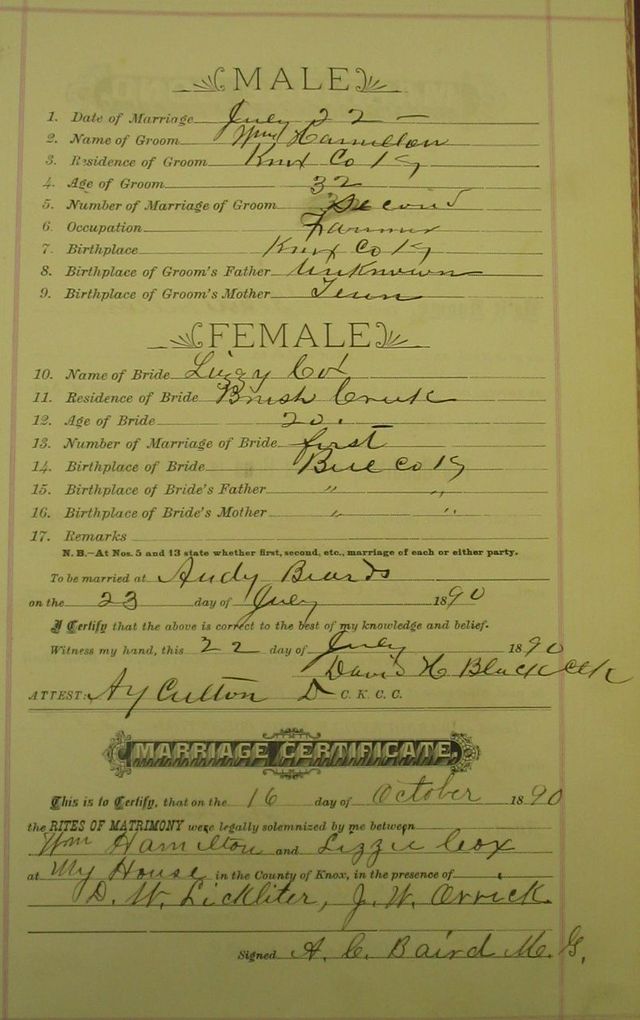 MALE
1. Date of Marriage July 22 —
2. Name of Groom Wm Hamilton
3. Residence of Groom Knox Co Ky
4. Age of Groom 32
5. Number of Marriage of Groom Second
6. Occupation Farmer
7. Birthplace Knox Co Ky
8. Birthplace of Groom's Father Unknown
9. Birthplace of Groom's Mother Tenn
FEMALE
10. Name of Bride Lizzy Cox
11. Residence of Bride Brush Creek
12. Age of Bride 20.
13. Number of Marriage of Bride first
14. Birthplace of Bride Bell Co Ky
15. Birthplace of Bride's Father " "
16. Birthplace of Bride's Mother " "
17. Remarks
N. B.—At Nos. 5 and 13 state whether first, second, etc., marriage of each or either party.
To be married at Andy Beards
on the 23 day of July 1890
I Certify that the above is correct to the best of my knowledge and belief.
Witness my hand, this 22 day of July 1890
David H Black Clk
ATTEST: A Y Culton D C. K. C. C.
MARRIAGE CERTIFICATE.
This is to Certify, that on the 16 day of October 1890
the RITES OF MATRIMONY were legally solemnized by me between
Wm Hamilton and Lizzie Cox
at My House in the County of Knox, in the presence of
D. W. Lickliter, J. W. Orrick
Signed A. C. Baird M. G.